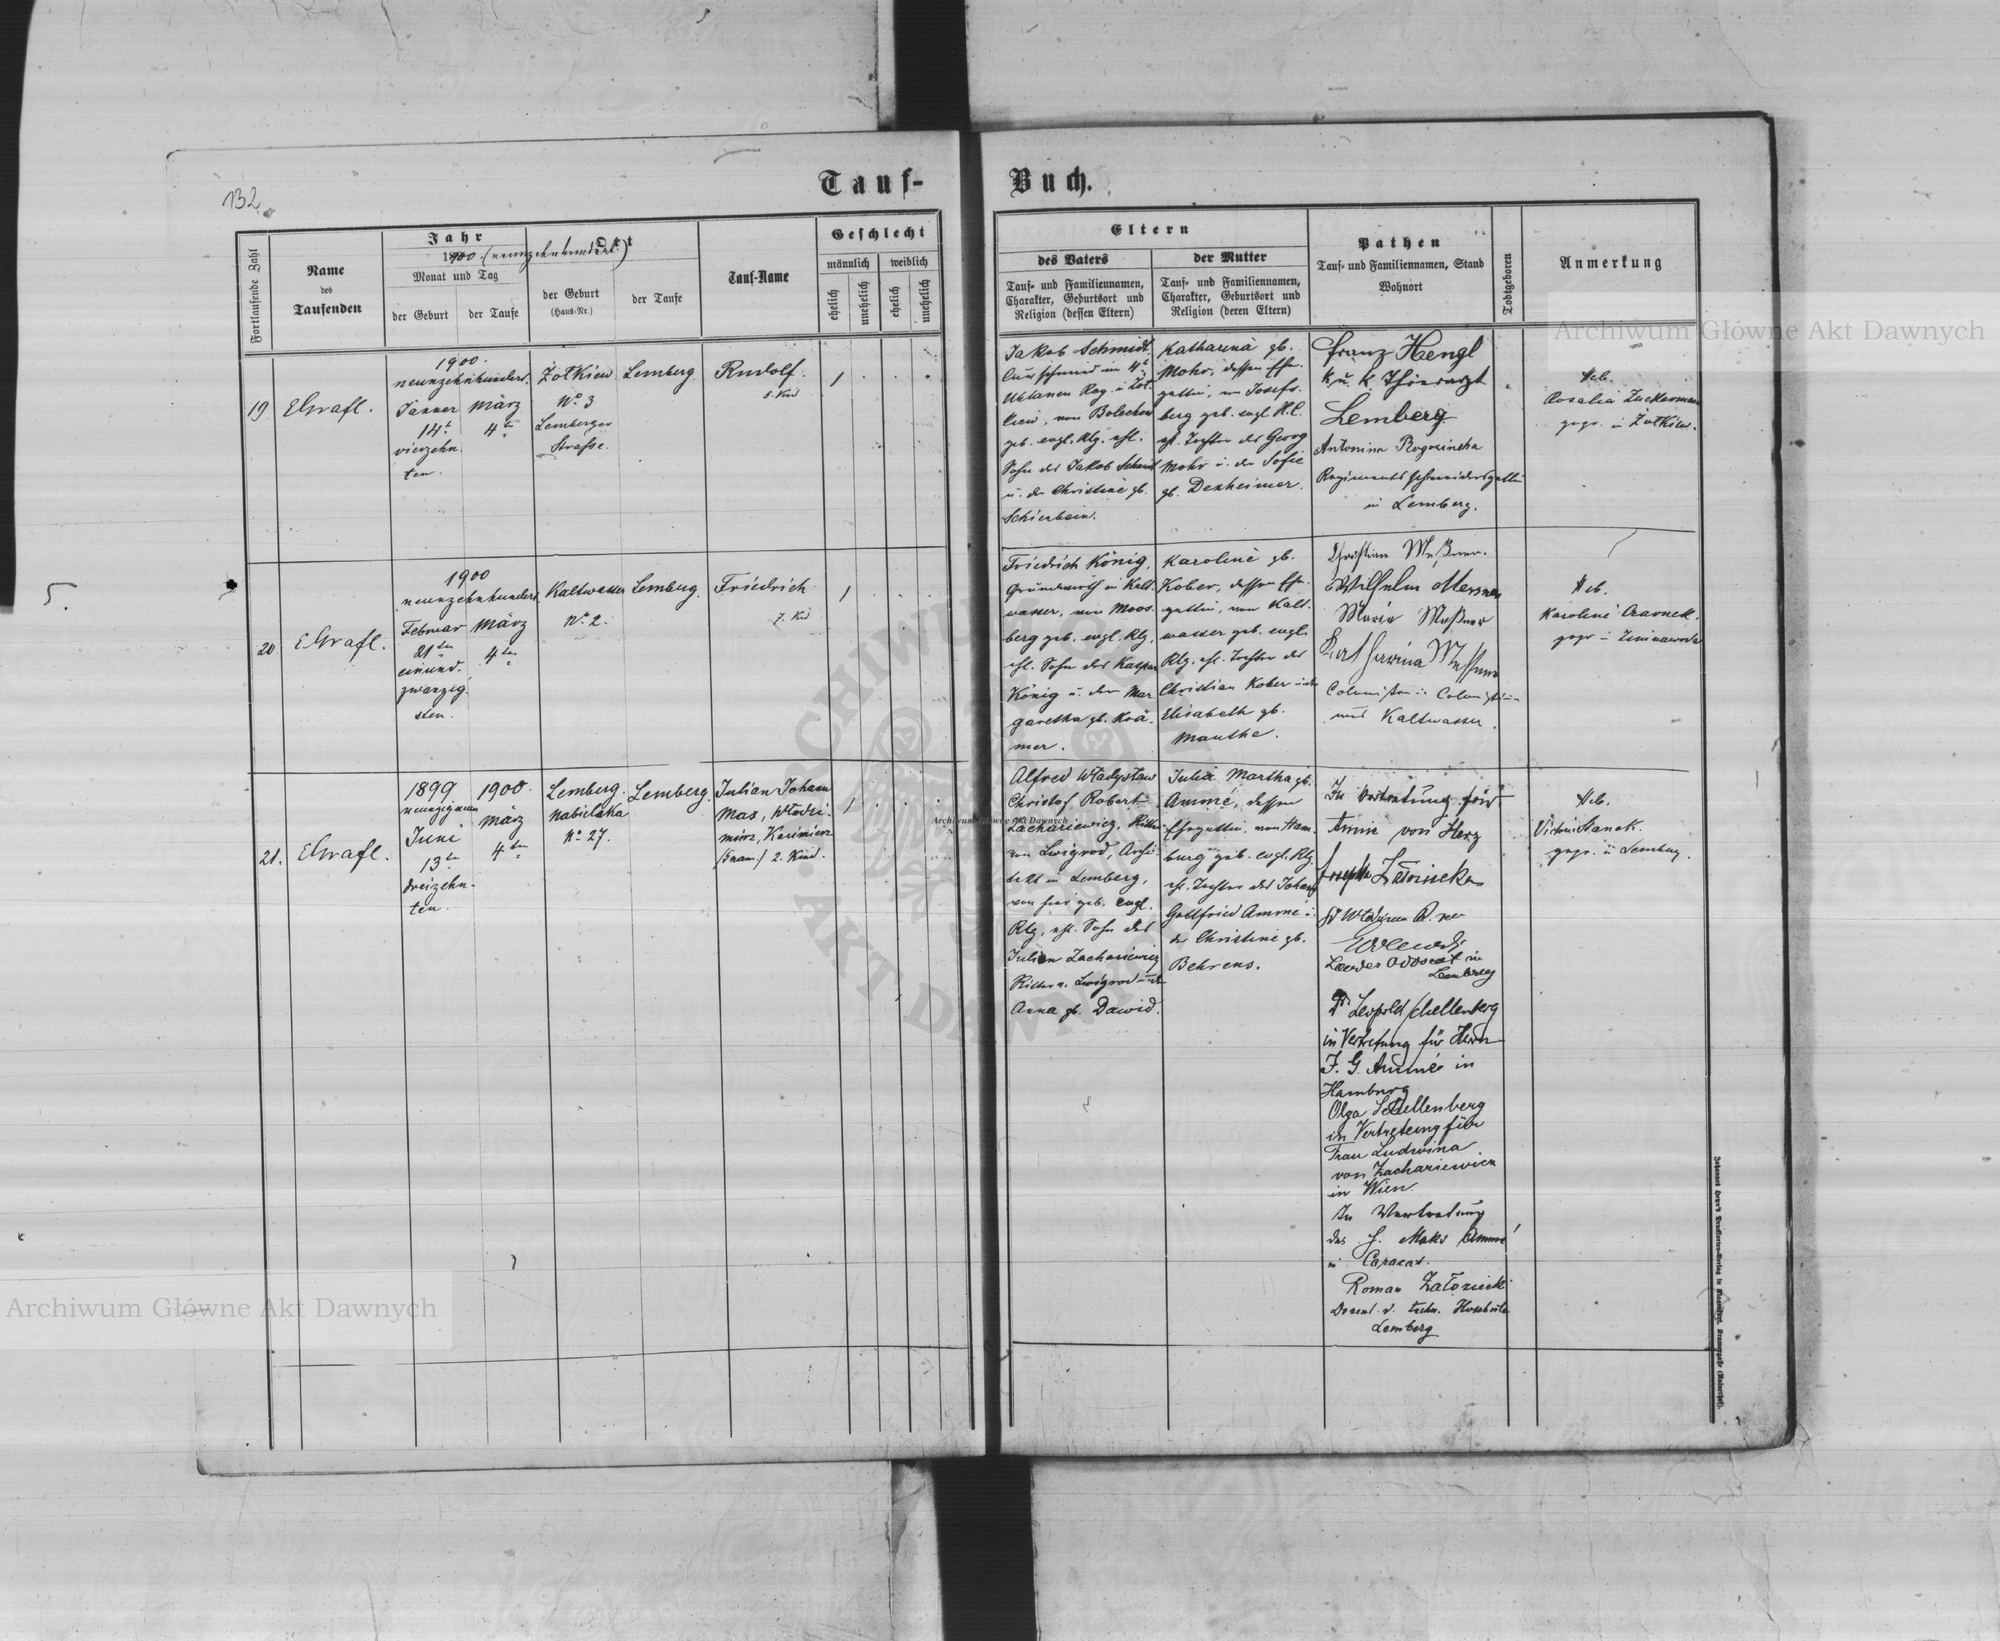 132
Tauf-
Buch.
Fortlaufende Zahl
Name
des
Taufenden
Jahr
1900 (neunzehnhundert)
Ort
Monat und Tag
der Geburt
der Taufe
der Geburt
(Haus-Nr.)
der Taufe
Tauf-Name
Geschlecht
männlich
weiblich
ehelich
unehelich
ehelich
unehelich
Eltern
des Vaters
Tauf- und Familiennamen,
Charakter, Geburtsort und
Religion (dessen Eltern)
der Mutter
Tauf- und Familiennamen,
Charakter, Geburtsort und
Religion (deren Eltern)
Pathen
Tauf- und Familiennamen, Stand
Wohnort
Todtgeboren
Anmerkung
19
EGrafl.
1900.
neunzehnhundert.
Jänner
14t.
vierzehn.
ten.
März
4ten
Żołkiew
No 3
Lemberger
Strasse.
Lemberg
Rudolf.
5. Kind
1
Jakob Schmidt,
Curschmied im 4t.
Uhlanen Reg. in Żoł.
kiew, von Bolechow
geb. evgl. Rlg. ehl.
Sohn des Jakob Schmidt
u. der Christine gb.
Schierbein.
Katharina gb.
Mohr, dessen Ehe.
gattin, von Josefs.
berg geb. evgl. H.C.
ehl. Tochter des Georg
Mohr u. der Sofie
gb. Dexheimer.
Franz Hengl
k. u. k Thierarzt
Lemberg
Antonina
Regimentsschneidersgattin
in Lemberg.
Heb.
Rosalia Zuckerman
gepr. in Żołkiew.
20
EGrafl.
1900
neunzehnhundert.
Februar
21ten
einund.
zwanzig.
sten.
März
4ten
Kaltwasser
No 2.
Lemberg.
Friedrich
7. Kind
1
Friedrich König,
Grundwirth in Kalt.
wasser, von Moos.
berg geb. evgl. Rlg,
ehl. Sohn des Kaspar
König u. der Mar.
garetha gb. Krä.
mer.
Karoline gb.
Kober, dessen Ehe.
gattin, von Kalt.
wasser geb. evgl.
Rlg. ehl. Tochter des
Christian Kober u. der
Elisabeth gb.
Manthe.
Christian Meßner.
Wilhelm Messner
Maria Meßner
Katharina Messner
Colonisten u.
aus Kaltwasser.
Heb.
Karoline
gepr. in
21.
EGrafl.
1899
Juni
13ten
dreizehn.
ten.
1900.
März
4ten
Lemberg.
Nabielaka
No 27.
Lemberg.
Julian Johann
Max, Włodzi.
mierz, Kasimierz
(5nam.) 2. Kind.
1
Alfred Władysław
Christof Robert
Zachariewicz, Ritter
von Lwigrod, Archi.
tekt in Lemberg,
von hier geb. evgl.
Rlg, ehl. Sohn des
Julian Zachariewicz
Ritter v. Lwigrod u. der
Anna gb. Dawid.
Julia Martha gb.
Ammé, dessen
Ehegattin, von Ham.
burg geb. evgl. Rlg.
ehl. Tochter des Johann
Gottfried Ammé u.
der Christine gb.
Behrens.
In Vertretung für
Annie von Herz
Josepha Załoziecka
Landes Advocat in
Lemberg
Dr. Leopold Schellenberg
in Vertretung für Herrn
J. G. Ammé in
Hamburg
Olga Schellenberg
in Vertretung für
Frau Ludwina
von Zachariewicz
in Wien.
In Vertretung
des H. Maks Ammé
in Caracas.
Roman Załoziecki
Docent d. techn. Hochschule
Lemberg
Heb.
gepr. in Lemberg.
Archiwum Główne Akt Dawnych
Archiwum Główne Akt Dawnych
Archiwum Główne Akt Dawnych
ARCHIWUM
AKT DAWNYCH